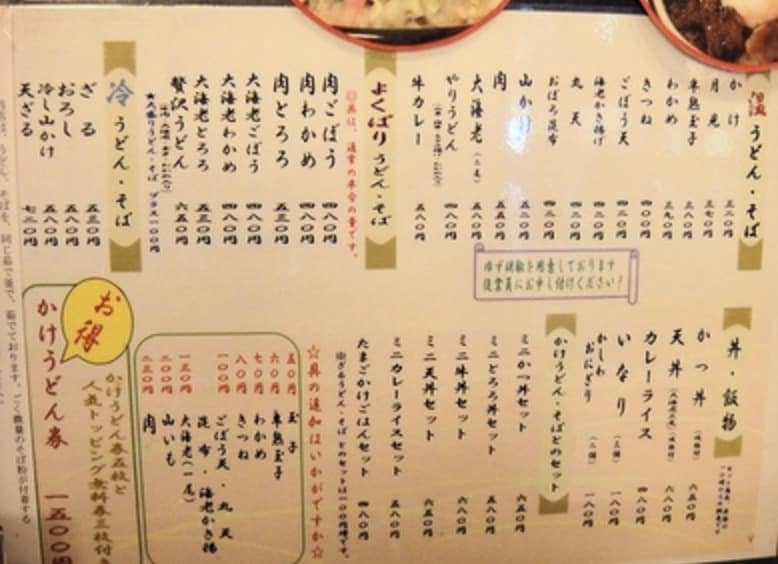 温 うどん・そば
かけ 三二〇円
月見 三七〇円
半熟玉子 三八〇円
わかめ 三九〇円
きつね 四〇〇円
ごぼう天 四二〇円
海老かき揚げ 四二〇円
丸天 四二〇円
おぼろ昆布 四二〇円
山かけ 五二〇円
肉 五五〇円
大海老(二尾) 五八〇円
やりうどん 四八〇円
牛カレー 五八〇円
よくばりうどん・そば
◎具は、通常の半分の量です。
肉ごぼう 四八〇円
肉わかめ 四八〇円
肉とろろ 五三〇円
大海老ごぼう 四八〇円
大海老わかめ 四八〇円
大海老とろろ 五三〇円
贅沢うどん 六五〇円
★大盛りうどん・そば プラス一〇〇円
冷 うどん・そば
ざる 五三〇円
おろし 五八〇円
冷し山かけ 五八〇円
天ざる 七三〇円
ゆず胡椒を用意しております
従業員にお申し付けください!
丼・飯物
かつ丼 六五〇円
天丼 六八〇円
カレーライス 四八〇円
いなり(三個) 一八〇円
かしわおにぎり(二個) 一八〇円
かけうどん・そばとのセット
ミニかつ丼セット 六五〇円
ミニとろろ丼セット 五八〇円
ミニ牛丼セット 六八〇円
ミニ天丼セット 六五〇円
ミニカレーライスセット 五八〇円
たまごかけごはんセット 四八〇円
☆具の追加はいかがですか☆
五〇円 玉子
六〇円 半熟玉子
七〇円 わかめ
八〇円 きつね
一〇〇円 ごぼう天・丸天
昆布・海老かき揚
一三〇円 大海老(一尾)
二〇〇円 山いも
二三〇円 肉
お得
かけうどん券五枚と
人気トッピング無料券三枚付き
かけうどん券 一五〇〇円